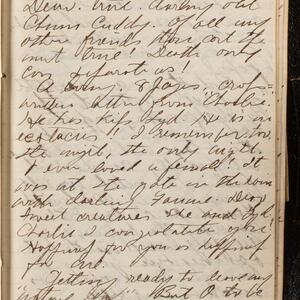 Dear. And darling old
Chum Cuddy. Of all my
other friends thou art the
most true! Death only
can separate us!
A long, 8 pages, cross-
written letter from Charlie.
He has kissed Syd. He is in
ecstacies! I remember, too,
the night, the only night
I ever loved a female! It
was at the gate in the
with darling Fannie. Dear
sweet creatures she and Syd.
Charlie I congratulate you!
Nothing for you is
for me.
Getting ready to leave my
But O to be